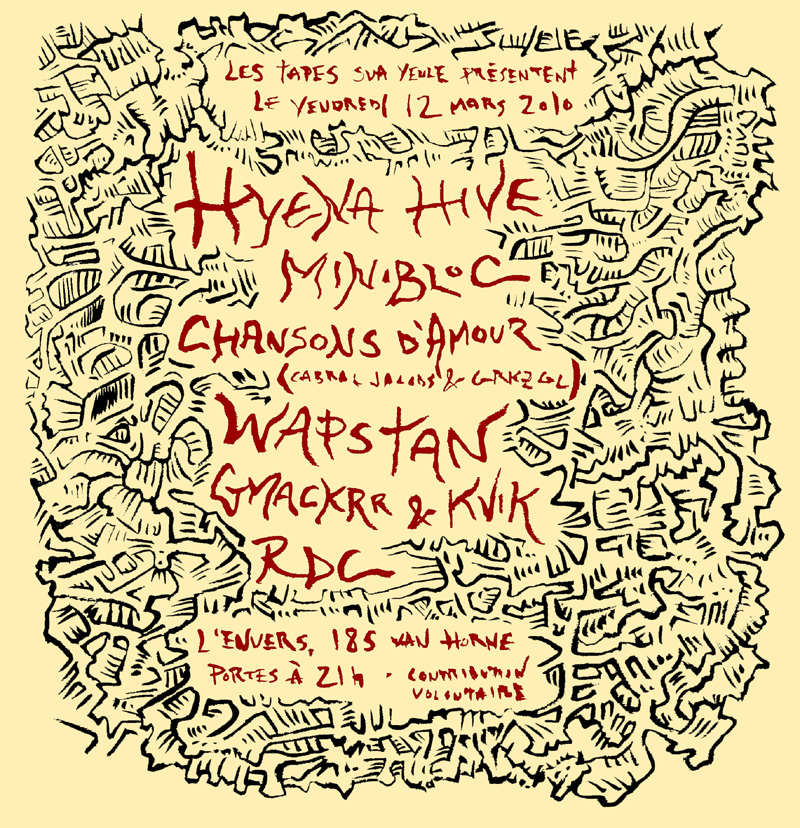 LES TAPES SUR YEULE PRÉSENTENT
LE VENDREDI 12 MARS 2010
HYENA HIVE
MINIBLOC
CHANSONS D'AMOUR
(CABRAL JACOBS & GRKZGL)
WAPSTAN
GMACKRR & KVIK
RDC
L'ENVERS, 185 VAN HORNE
PORTES À 21h - CONTRIBUTION
VOLONTAIRE